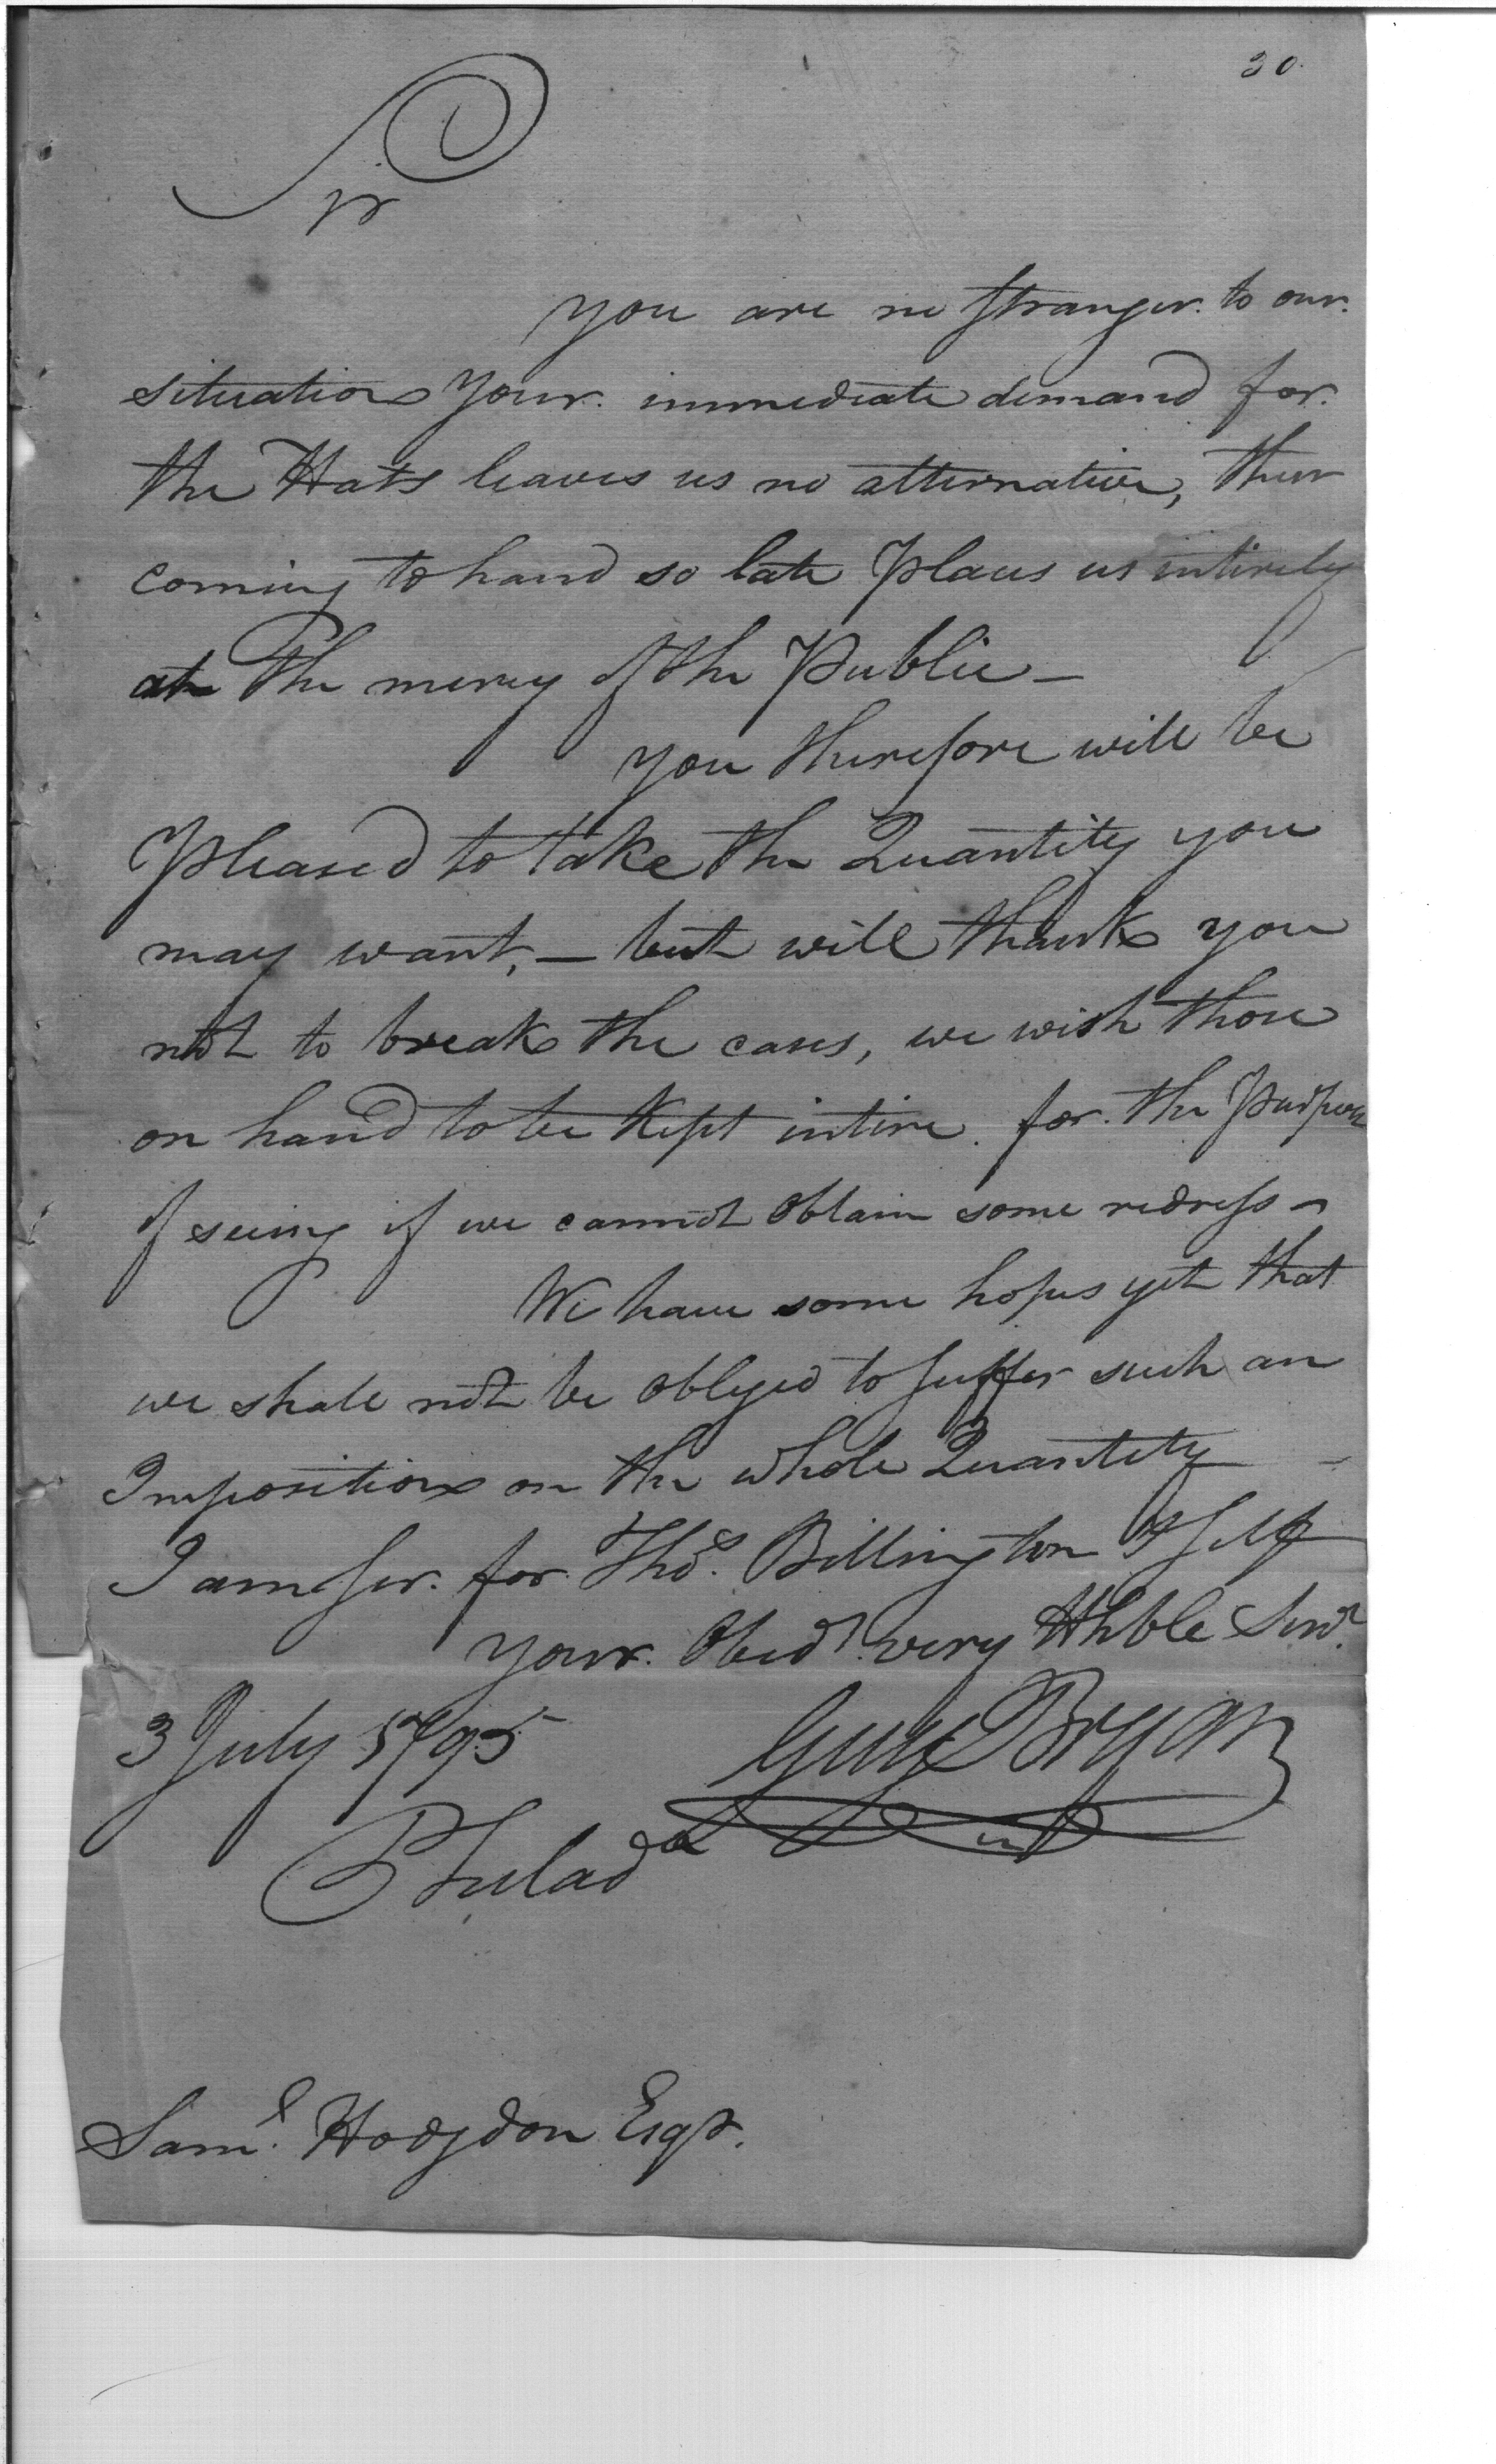 30.
Sir
you are no stranger to our
situation your immediate demand for
the Hats leaves us no alternative, their
coming to hand so late places us intirely
at the mercy of the Public —
you therefore will be
Pleased to take the Quantity you
may want, — but will thank you
not to break the cases, we wish those
on hand to be Kept intire for the Purpose
of seeing if we cannot obtain some redress —
We have some hopes yet that
we shall not be obliged to suffer such an
Imposition on the whole Quantity —
I am Sir for Thos. Billington & Self
your Obedt. very Hhble Servt.
3 July 1795 Guy Bryan
Philada
Saml. Hodgdon Esqr.